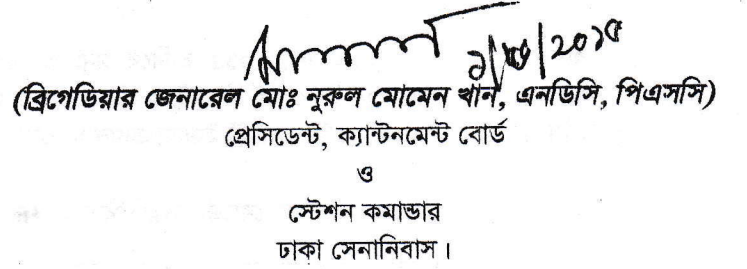 (ব্রিগেডিয়ার জেনারেল মোঃ নুরুল মোমেন খান, এনডিসি, পিএসসি)
প্রেসিডেন্ট, ক্যান্টনমেন্ট বোর্ড
ও
স্টেশন কমান্ডার
ঢাকা সেনানিবাস।